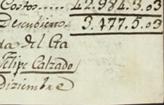 Costos.... 42.984.3.03
Descubierto.. 3.477.5.03
del Cta
Felipe Calzado
Diziembre